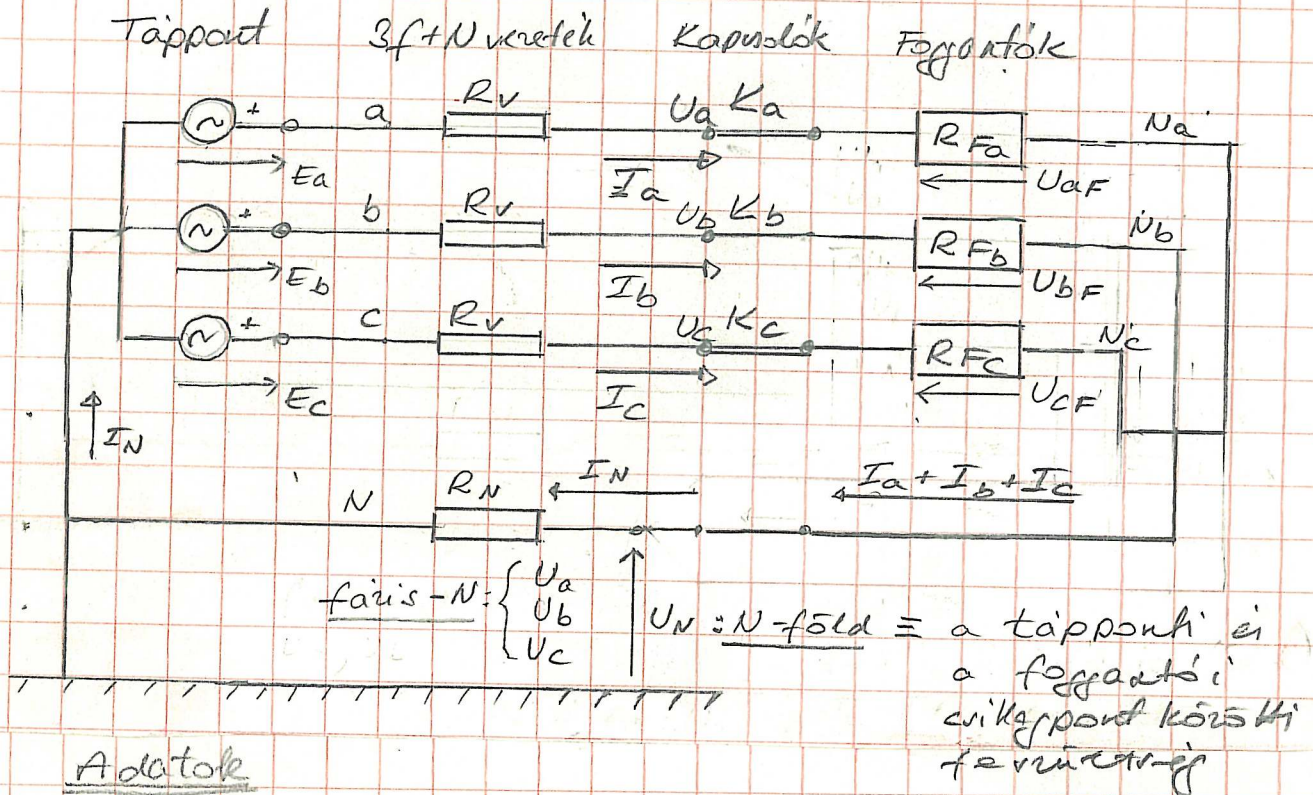 Táppont 3f+N vezeték Kapcsolók Fogyasztók
+ a Rv Ua Ka RFa Na
Ea Ia UaF
+ b Rv Ub Kb RFb Nb
Eb Ib UbF
+ c Rv Uc Kc RFc Nc
Ec Ic UcF
IN
N RN IN Ia + Ib + Ic
fázis-N: { Ua
Ub
Uc
UN : N-föld ≡ a tápponti és
a fogyasztói
csillagpont közötti
feszültség
Adatok